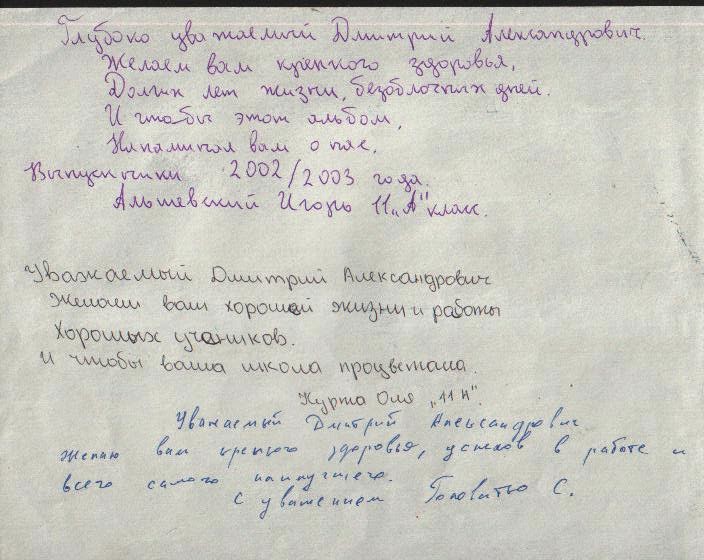 Глубоко уважаемый Дмитрий Александрович.
Желаем вам крепкого здоровья,
Долгих лет жизни, безоблочных дней.
И чтобы этот альбом,
Напаминал вам о нас.
Выпускники 2002/2003 года.
Альшевский Игорь 11 „А" класс.
Уважаемый Дмитрий Александрович
Желаем вам хорошей жизни и работы
Хороших учеников.
И чтобы ваша школа процветала.
Курта Оля „11 А".
Уважаемый Дмитрий Александрович
желаю вам крепкого здоровья, успехов в работе и
всего самого наилучшего.
С уважением С.